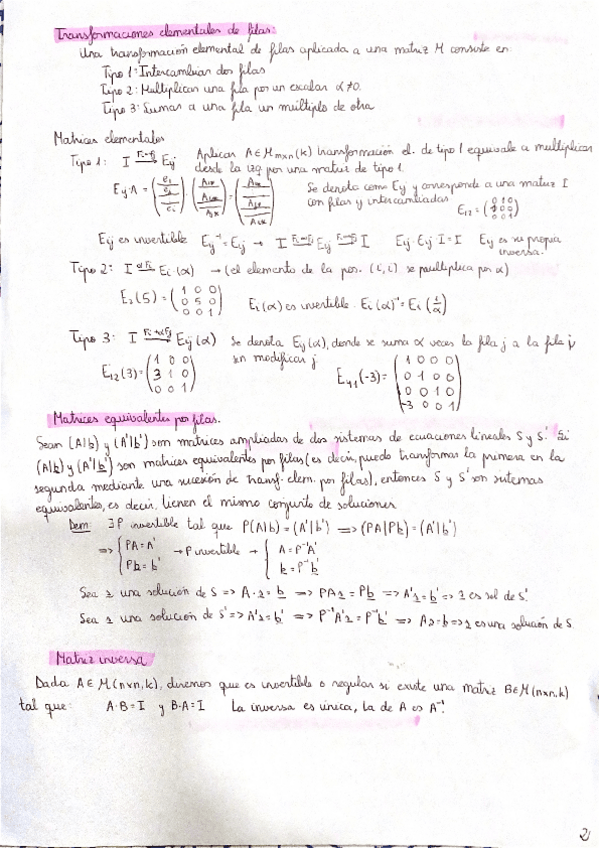 Transformaciones elementales de filas:
Una transformación elemental de filas aplicada a una matriz M consiste en:
Tipo 1: Intercambiar dos filas
Tipo 2: Multiplicar una fila por un escalar α≠0.
Tipo 3: Sumar a una fila un múltiplo de otra
Matrices elementales
Tipo 1: I → Eij Aplicar A∈Mmxn(k) transformación el. de tipo 1 equivale a multiplicar
desde la izq por una matriz de tipo 1.
Eij·A =
Se denota como Eij y corresponde a una matriz I
con filas y intercambiadas E12 =
Eij es invertible Eij⁻¹ = Eij → I → Eij → I Eij·Eij·I = I Eij es su propia
inversa.
Tipo 2: I → Ei(α) → (el elemento de la pos. (i,i) se multiplica por α)
E2(5) = (1 0 0
0 5 0
0 0 1)
Ei(α) es invertible · Ei(α)⁻¹ = Ei(1/α)
Tipo 3: I → Eij(α) Se denota Eij(α), donde se suma α veces la fila j a la fila
sin modificar j
E12(3) = (1 0 0
3 1 0
0 0 1)
E41(-3) = (1 0 0 0
0 1 0 0
0 0 1 0
-3 0 0 1)
Matrices equivalentes por filas.
Sean (A|b) y (A'|b') som matrices ampliadas de dos sistemas de ecuaciones lineales S y S'. Si
(A|b) y (A'|b') son matrices equivalentes por filas (es decir, puedo transformar la primera en la
segunda mediante una sucesión de transf. elem. por filas), entonces S y S' son sistemas
equivalentes, es decir, tienen el mismo conjunto de soluciones.
Dem: ∃P invertible tal que P(A|b) = (A'|b') => (PA|Pb) = (A'|b')
=> { PA = A' → P invertible → { A = P⁻¹A'
Pb = b' b = P⁻¹b'
Sea s una solución de S => A·s = b => PAs = Pb => A's = b' => s es sol de S'.
Sea s una solución de S' => A's = b' => P⁻¹A's = P⁻¹b' => As = b => s es una solución de S
Matriz inversa
Dada A∈M(nxn,k), diremos que es invertible o regular si existe una matriz B∈M(nxn,k)
tal que: A·B = I y B·A = I La inversa es única, la de A es A⁻¹
2